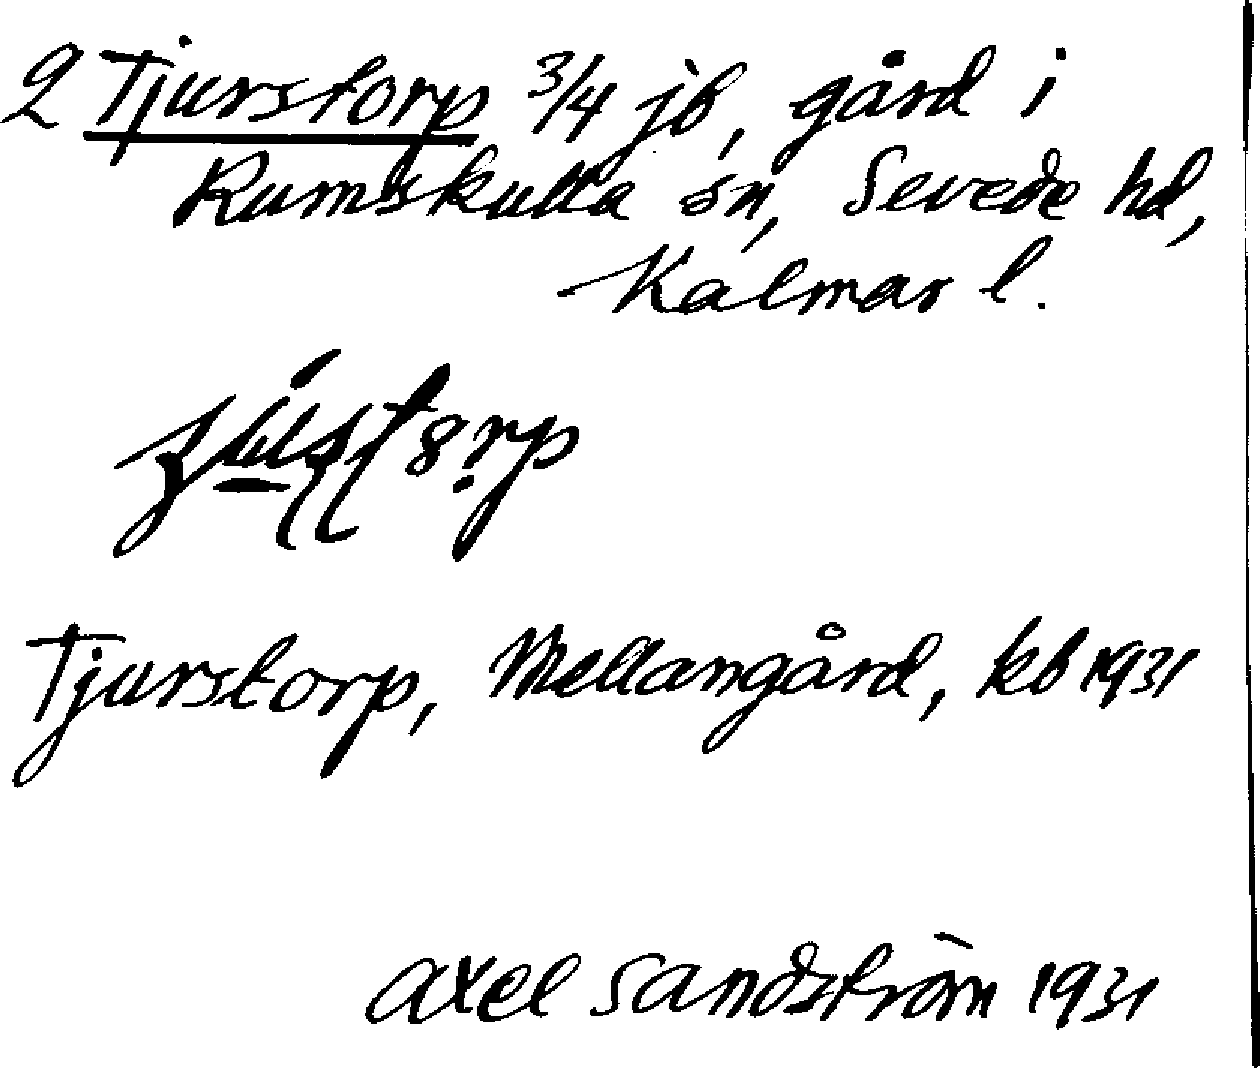 2 Tjurstorp 3/4 jb, gård i
Rumskulla sn, Sevede hd,
Kalmar l.
Tjurstorp, Mellangård, kb 1931
Axel Sandström 1931